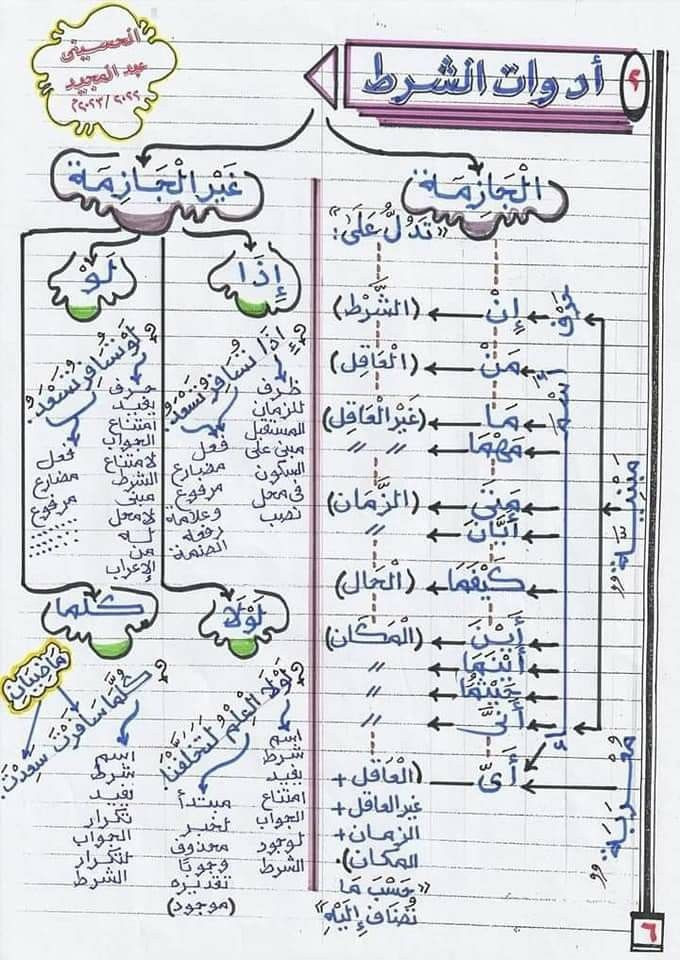 ٢
أدوات الشرط
الحسيني
عبد المجيد
٢٠٢٢/٢٠٢٣م
الْجَازِمَة
«تَدُلُّ عَلَى:»
حرف
إِنْ (الشَّرْط)
اسم
مَنْ (الْعَاقِل)
مَا (غَيْر الْعَاقِل)
مَهْمَا " "
مَتَى (الزَّمَان)
أَيَّانَ "
كَيْفَمَا (الْحَال)
أَيْنَ (الْمَكَان)
أَيْنَمَا "
حَيْثُمَا "
أَنَّى "
أَىّ (الْعَاقِل +
غير العاقل +
الزمان +
المكان).
«حَسْبَ مَا
تُضَاف إِلَيْهِ»
مَبْنِيَّة
مُعْرَبَة
غَيْر الْجَازِمَة
إِذَا
إِذَا تُسَافِرُ تَسْعَدُ
ظرف
للزمان
المستقبل
مبنى على
السكون
فى محل
نصب
فعل
مضارع
مرفوع
وعلامة
رفعه
الضمة
لَوْ
لَوْ تُسَافِرُ تَسْعَدُ
حرف
يفيد
امتناع
الجواب
لامتناع
الشرط
مبنى
لا محل
له
من
الإعراب
فعل
مضارع
مرفوع
لَوْلَا
لَوْلَا الْعِلْمُ لَتَخَلَّفْنَا
اسم
شرط
يفيد
امتناع
الجواب
لوجود
الشرط
مبتدأ
لخبر
محذوف
وجوبًا
تقديره
(موجود)
كلما
كُلَّمَا سَافَرْتَ سَعِدْتَ
ماضيان
اسم
شرط
يفيد
تكرار
الجواب
لتكرار
الشرط
٦